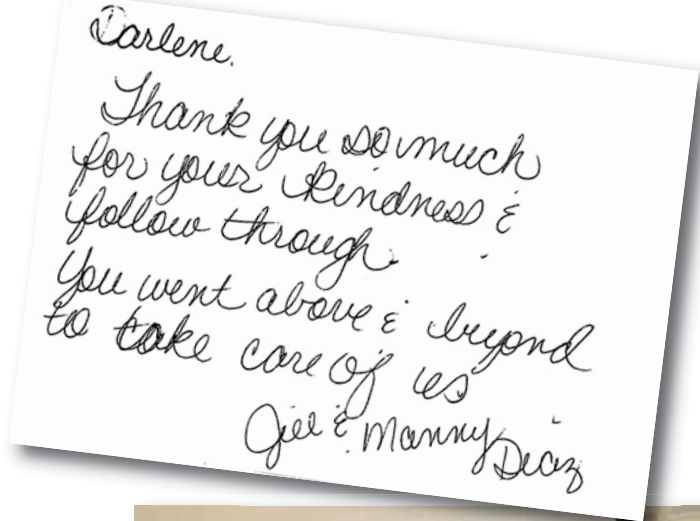 Darlene.
Thank you so much
for your kindness &
follow through.
You went above & beyond
to take care of us
Jill & Manny Diaz